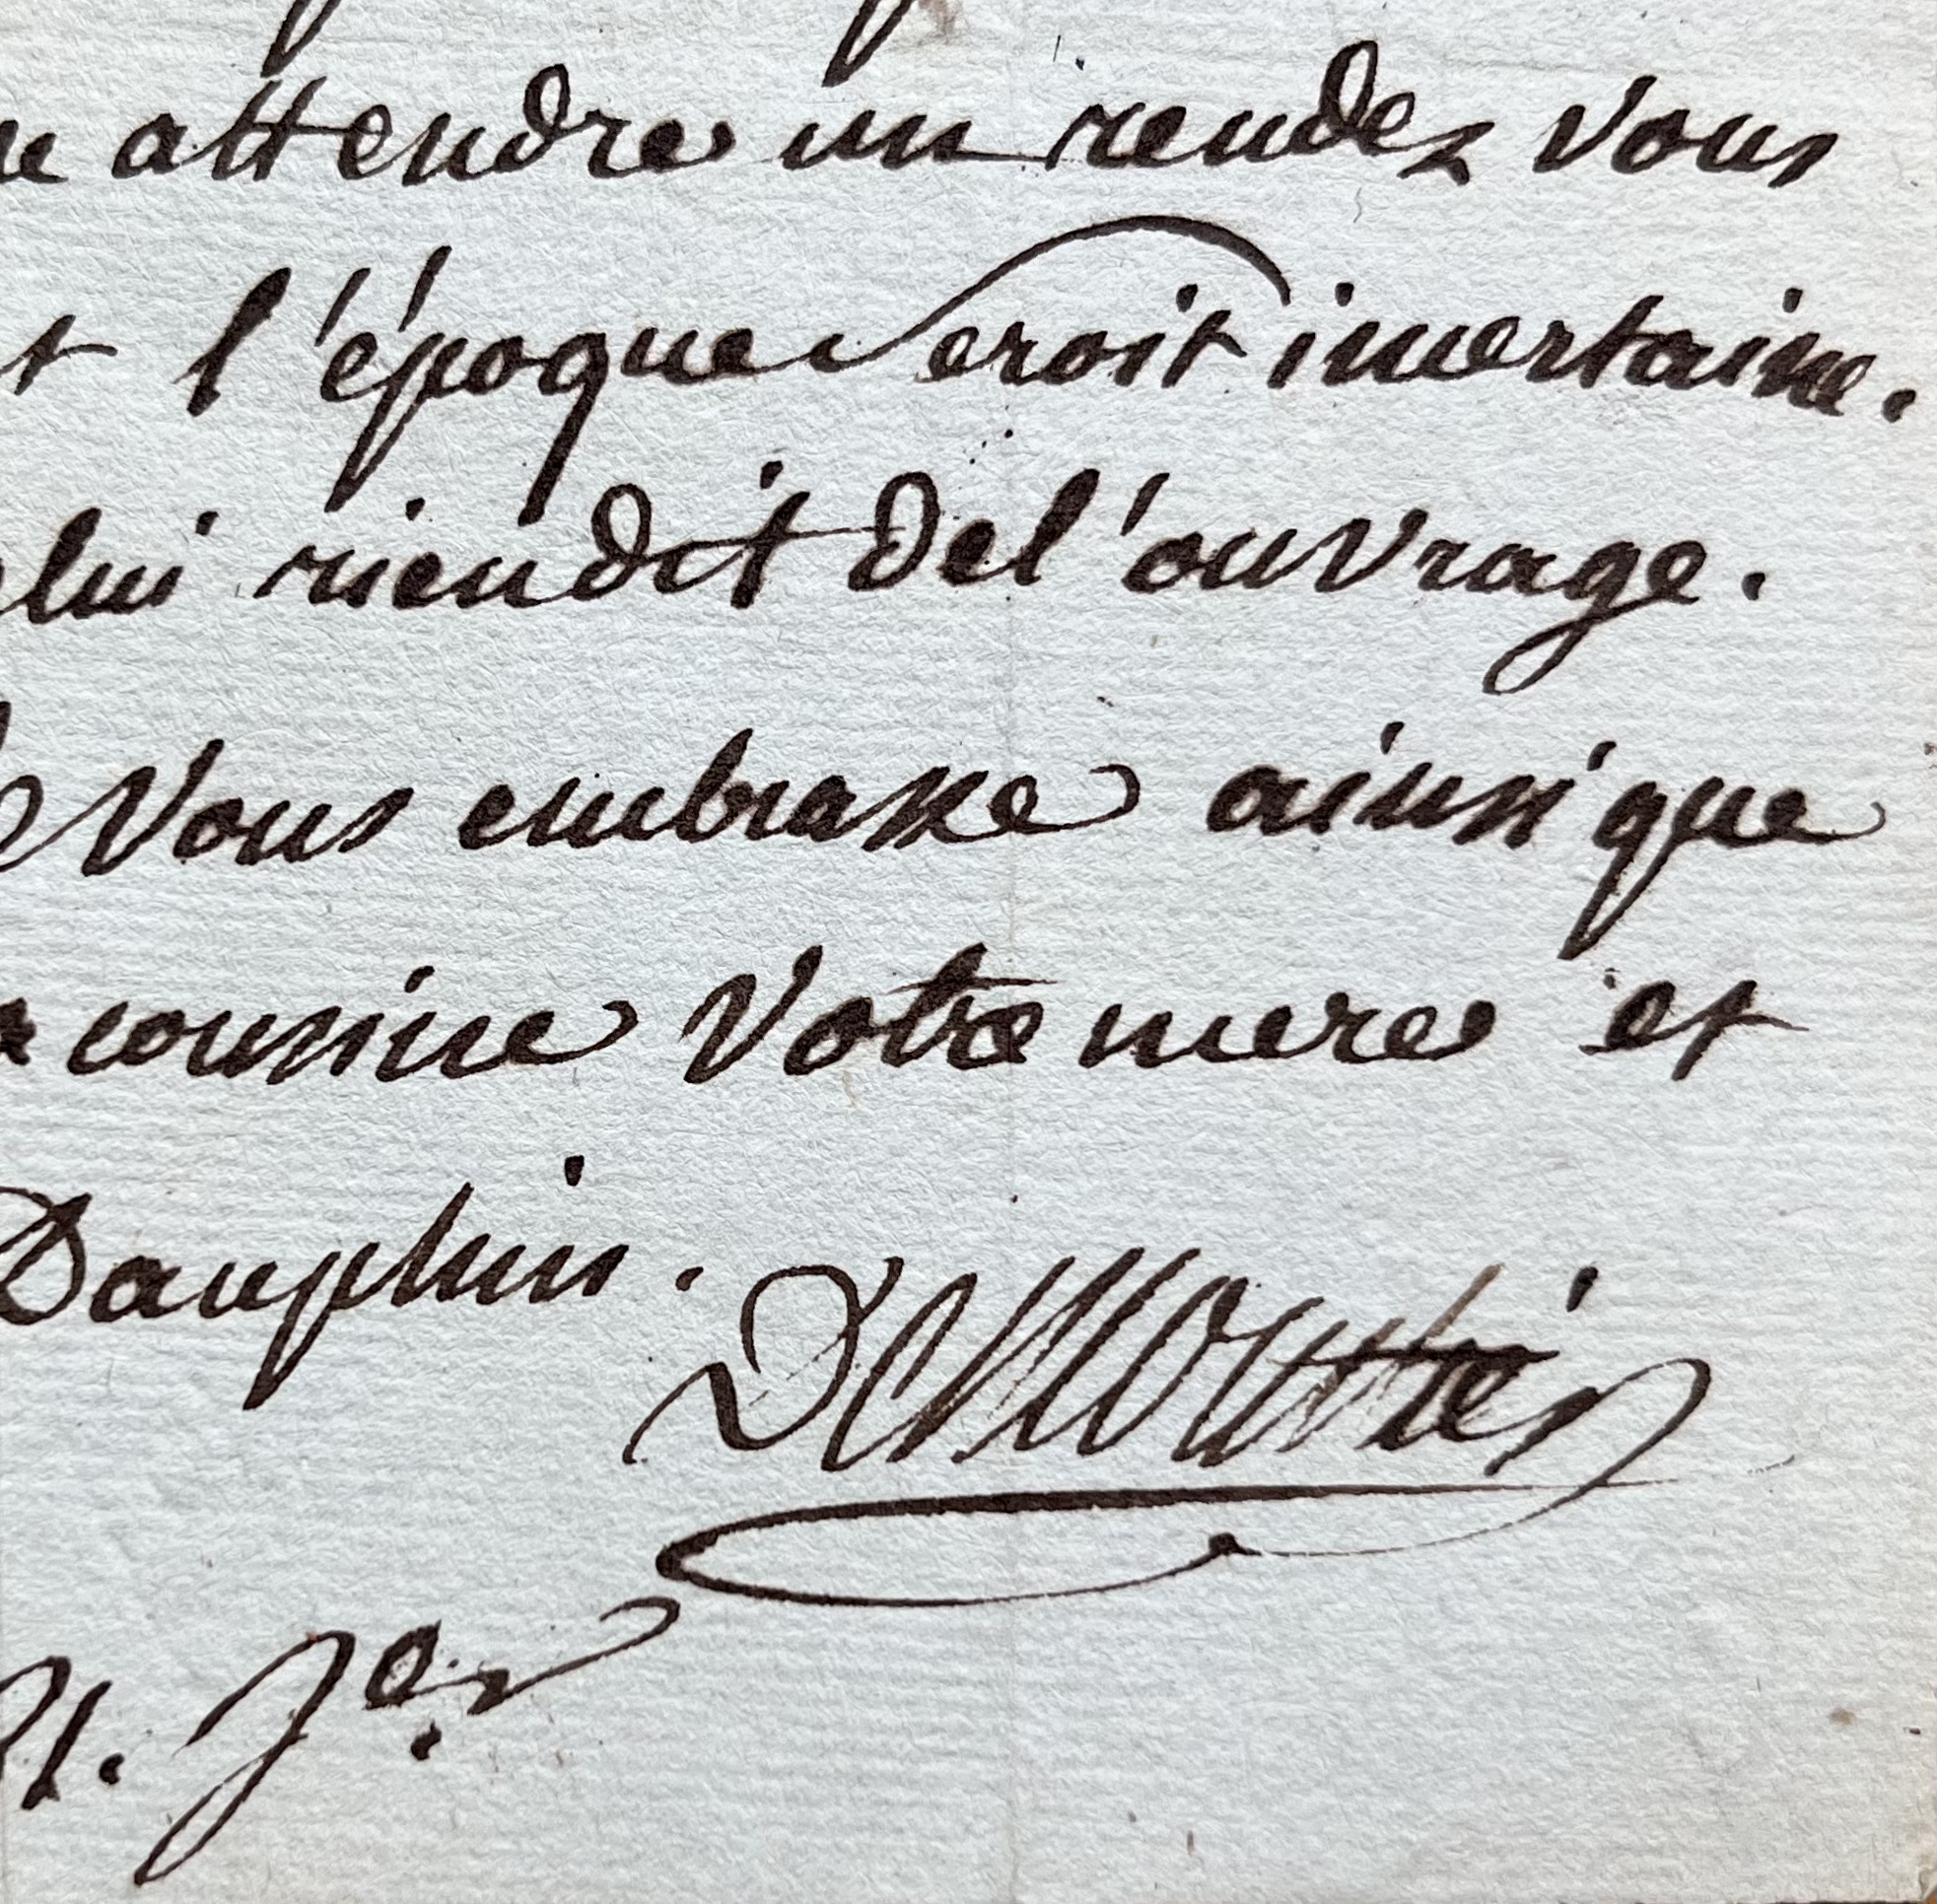 attendre un rendez vous
l'époque seroit incertaine.
lui riendit del'ouvrage.
Vous embrasse ainsi que
cousine Votre mere et
Dauphin.
31. Jer